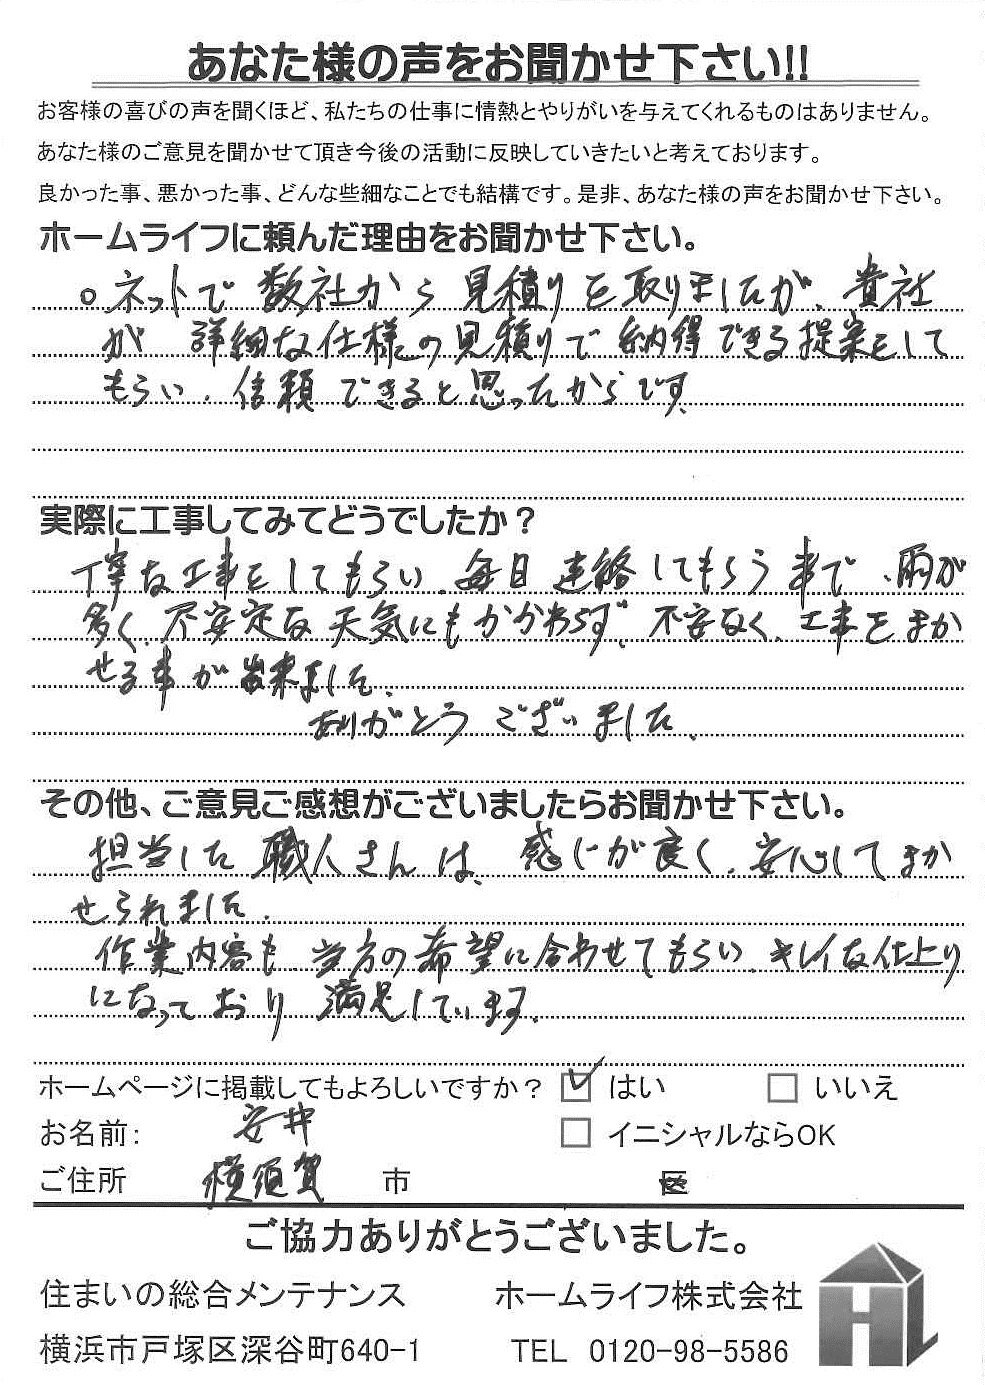 あなた様の声をお聞かせ下さい!!
お客様の喜びの声を聞くほど、私たちの仕事に情熱とやりがいを与えてくれるものはありません。
あなた様のご意見を聞かせて頂き今後の活動に反映していきたいと考えております。
良かった事、悪かった事、どんな些細なことでも結構です。是非、あなた様の声をお聞かせ下さい。
ホームライフに頼んだ理由をお聞かせ下さい。
○ネットで数社から見積りを取りましたが、貴社
が詳細な仕様の見積りで納得できる提案をして
もらい、信頼できると思ったからです。
実際に工事してみてどうでしたか？
丁寧な工事をしてもらい、毎日連絡してもらう事で、雨が
多く、不安定な天気にもかかわらず、不安なく、工事をまか
せる事が出来ました。
ありがとうございました。
その他、ご意見ご感想がございましたらお聞かせ下さい。
担当した職人さんは、感じが良く、安心してまか
せられました。
作業内容も当方の希望に合わせてもらい、キレイな仕上り
になっており満足しています。
ホームページに掲載してもよろしいですか？ ☑ はい □ いいえ
お名前： 安井 □ イニシャルならOK
ご住所 横須賀 市 区
ご協力ありがとうございました。
住まいの総合メンテナンス ホームライフ株式会社
横浜市戸塚区深谷町640-1 TEL 0120-98-5586
HL